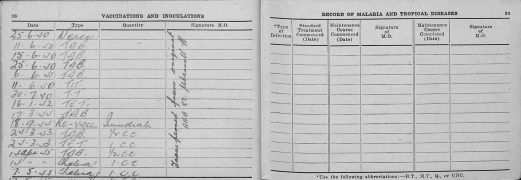 38
VACCINATIONS AND INOCULATIONS
Date Type Quantity Signature M.O.
25-6-40
11-6-40 TAB.
15-6-40 TAB.
25-6-40 TAB.
6-6-41 TAB.
11-6-40 T.T.
30-7-40 T.T.
16-1-42 TET.
17-3-44 TAB
18-9-44 RE-VACC
24-3-43 TAB 1/2 CC
24-3-43 TET. 1 CC
TAB. 1/2 CC
" " Cholera 1 CC
7-5-45 Cholera 1 CC
Transferred from original
RECORD OF MALARIA AND TROPICAL DISEASES
39
*Type of Infection
Standard Treatment Commenced (Date)
Maintenance Course Commenced (Date)
Signature of M.O.
Maintenance Course Completed (Date)
Signature of M.O.
*Use the following abbreviations:—B.T., M.T., Q., or UNC.